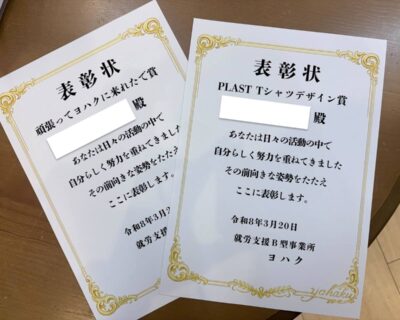 表彰状
頑張ってヨハクに来れたで賞
殿
あなたは日々の活動の中で
自分らしく努力を重ねてきました
その前向きな姿勢をたたえ
ここに表彰します。
令和8年3月20
就労支援B型事業所
ヨハ
表彰状
PLAST Tシャツデザイン賞
殿
あなたは日々の活動の中で
自分らしく努力を重ねてきました
その前向きな姿勢をたたえ
ここに表彰します。
令和8年3月20日
就労支援B型事業所
ヨハク
yohaku